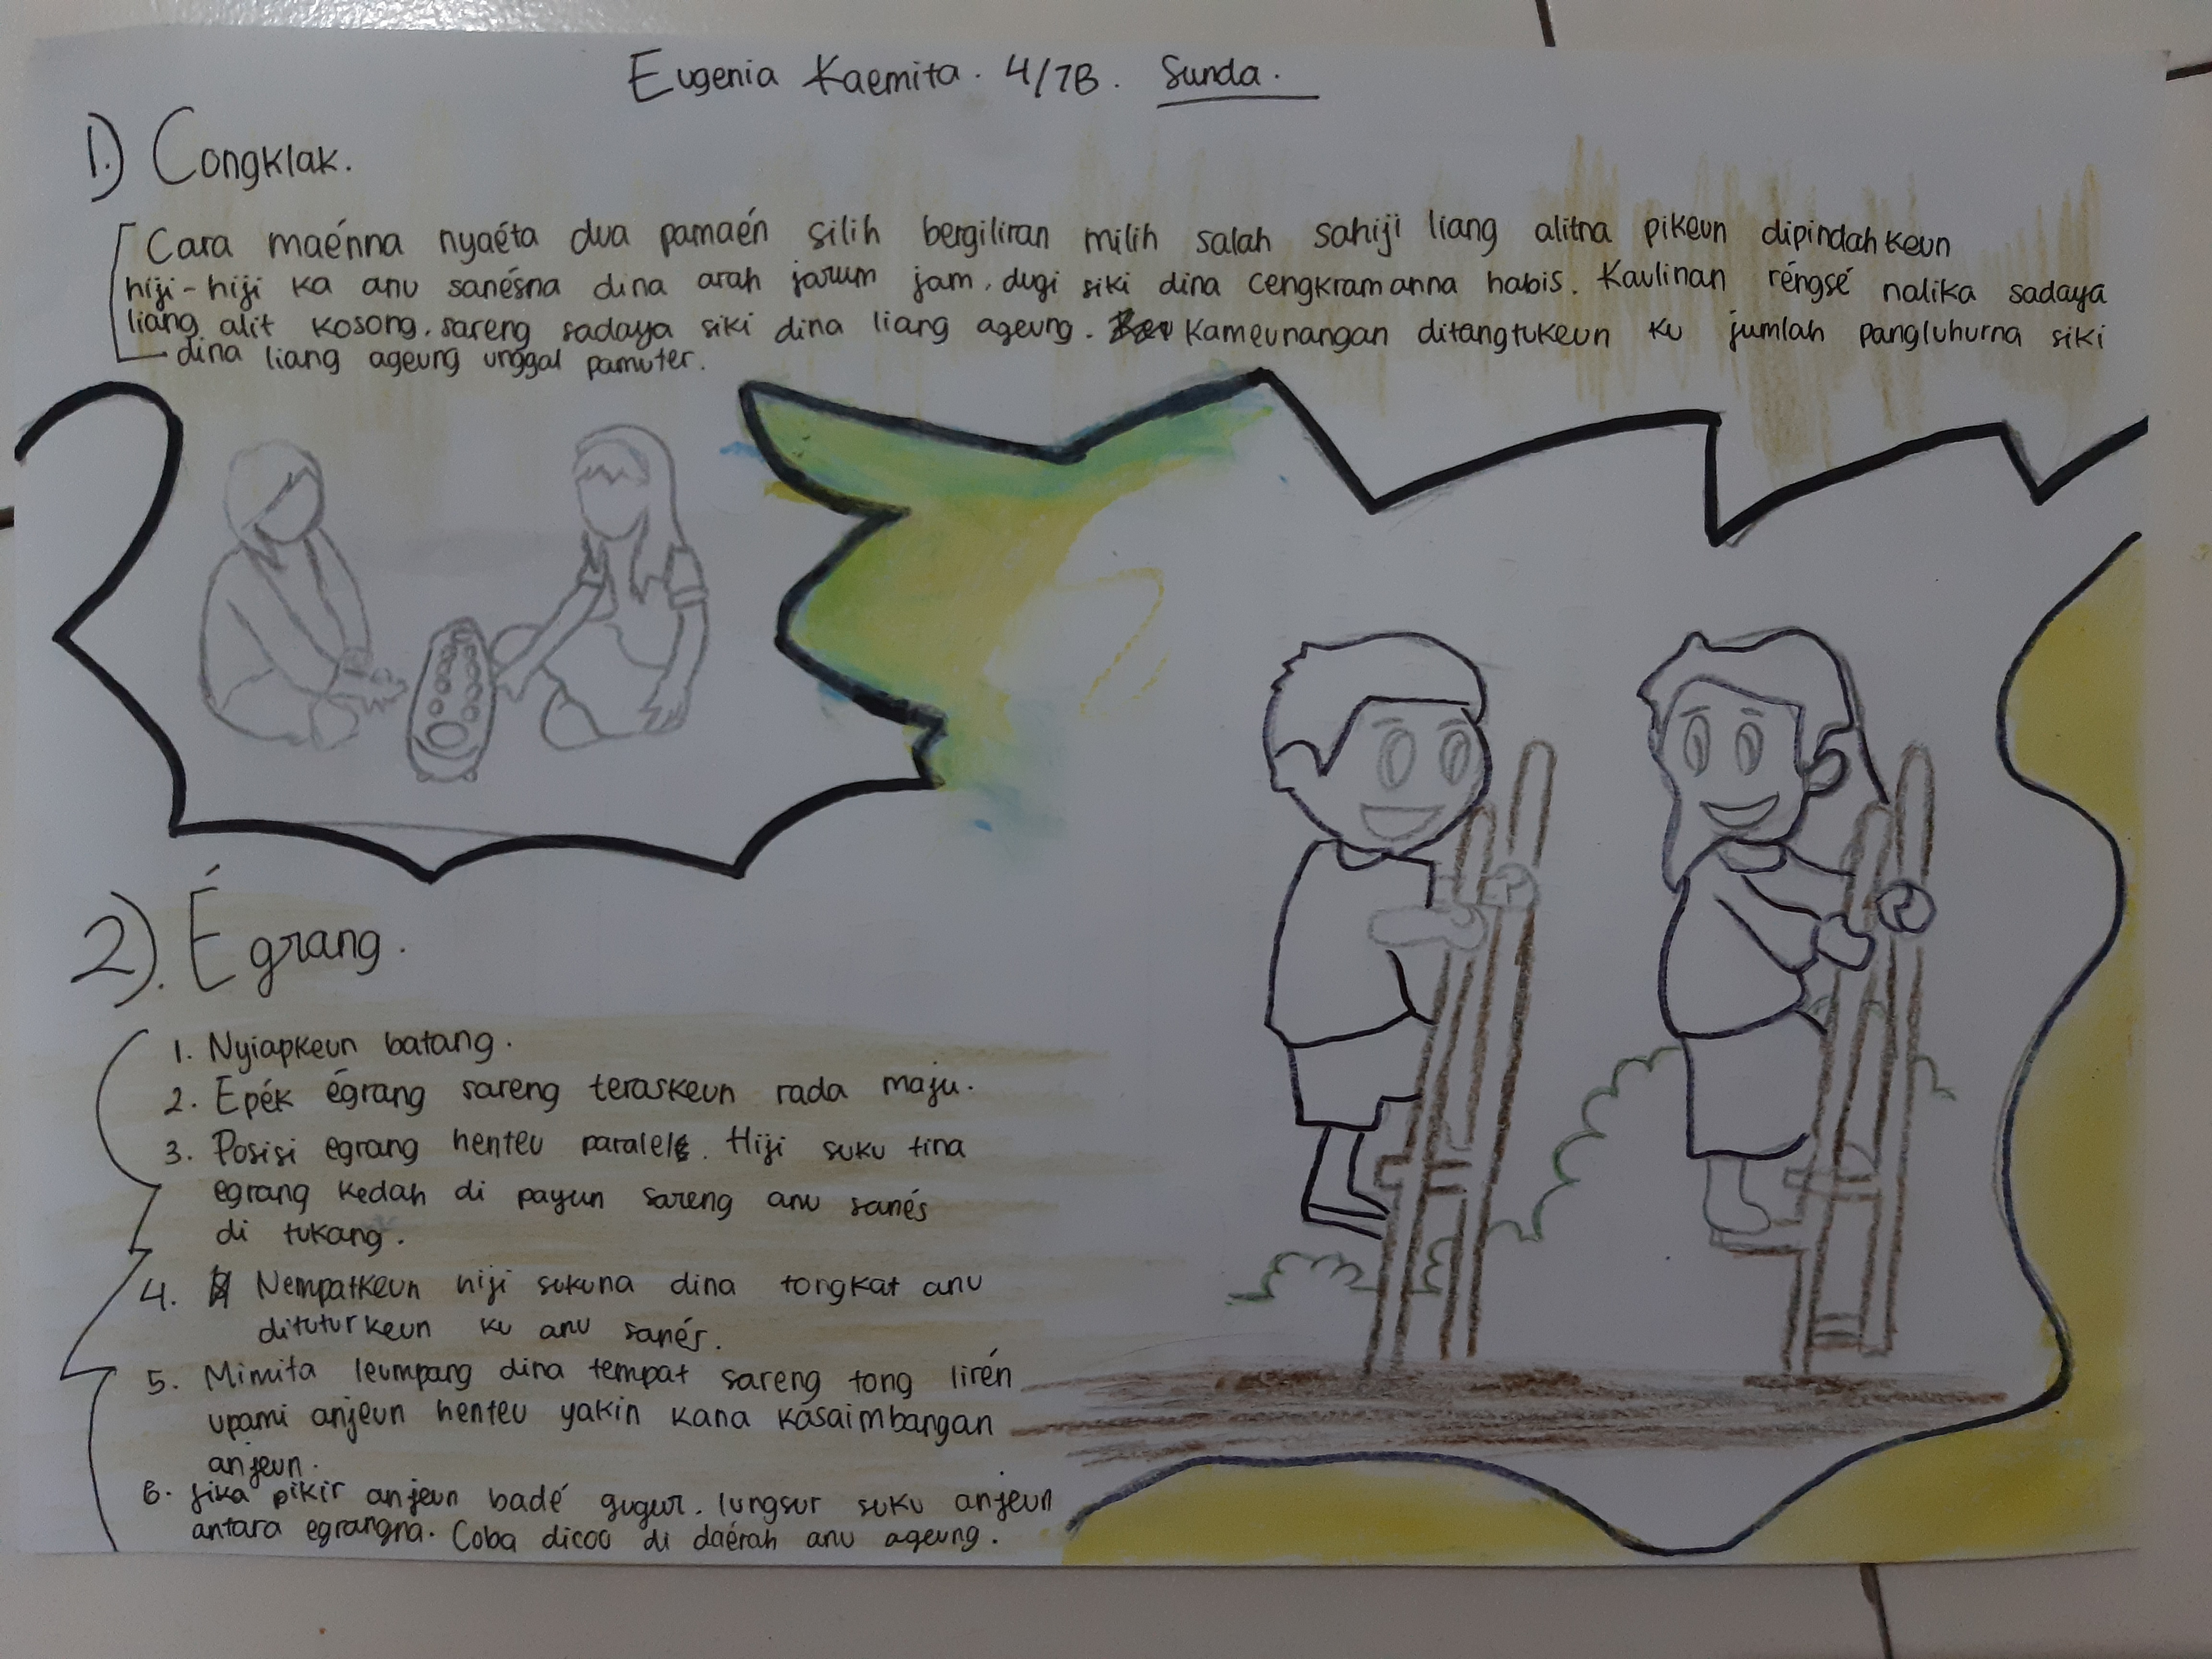 Eugenia Kaemita. 4/7B. Sunda.
1.) Congklak.
Cara maénna nyaéta dua pamaén silih bergiliran milih salah sahiji liang alitna pikeun dipindahkeun
hiji-hiji ka anu sanésna dina arah jarum jam, dugi siki dina cengkramanna habis. Kaulinan réngsé nalika sadaya
liang alit kosong, sareng sadaya siki dina liang ageung. Kameunangan ditangtukeun ku jumlah pangluhurna siki
dina liang ageung unggal pamuter.
2). Égrang.
1. Nyiapkeun batang.
2. Epék égrang sareng teraskeun rada maju.
3. Posisi egrang henteu paralel. Hiji suku tina
egrang kedah di payun sareng anu sanés
di tukang.
4. Nempatkeun hiji sukuna dina tongkat anu
dituturkeun ku anu sanés.
5. Mimita leumpang dina tempat sareng tong lirén
upami anjeun henteu yakin kana kasaimbangan
anjeun.
6. Jika pikir anjeun badé gugur, lungsur suku anjeun
antara egrangna. Coba dicoo di daérah anu ageung.